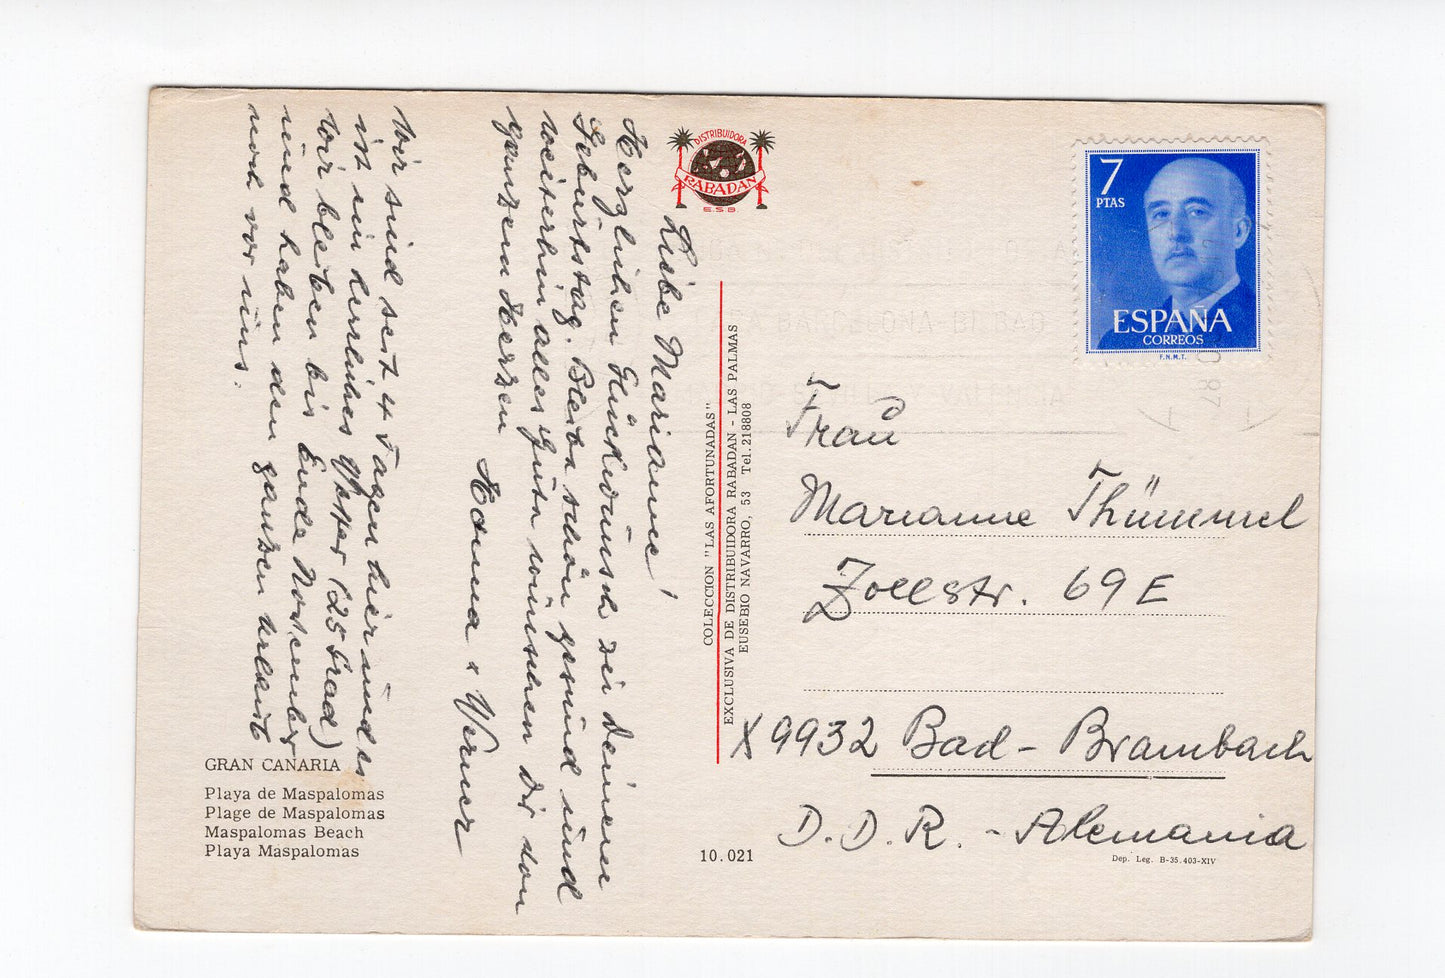 Liebe Marianne!
Herzlichen Glückwunsch zu Deinem
Geburtstag. Bleibe schön gesund und
weiterhin alles Gute wünschen Dir von
ganzem Herzen
Hanna + Werner
Wir sind seit 4 Tagen hier und es
ist ein herrliches Wetter (25 Grad)
Wir bleiben bis Ende November
und haben den ganzen Urlaub
noch vor uns.
GRAN CANARIA
Playa de Maspalomas
Plage de Maspalomas
Maspalomas Beach
Playa Maspalomas
DISTRIBUIDORA
RABADAN
E.S.B.
COLECCION "LAS AFORTUNADAS"
EXCLUSIVA DE DISTRIBUIDORA RABADAN - LAS PALMAS
EUSEBIO NAVARRO, 53 Tel. 218808
10.021
7
PTAS
ESPAÑA
CORREOS
F.N.M.T.
Frau
Marianne Thümmel
Zollstr. 69 E
X 9932 Bad-Brambach
D.D.R. - Alemania
Dep. Leg. B-35.403-XIV